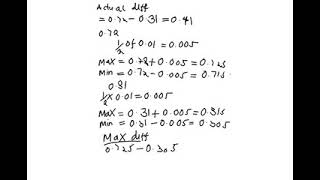 Actual diff
= 0.72 - 0.31 = 0.41
0.72
1/2 of 0.01 = 0.005
Max = 0.72 + 0.005 = 0.725
Min = 0.72 - 0.005 = 0.715
0.31
1/2 x 0.01 = 0.005
Max = 0.31 + 0.005 = 0.315
Min = 0.31 - 0.005 = 0.305
Max diff
0.725 - 0.305